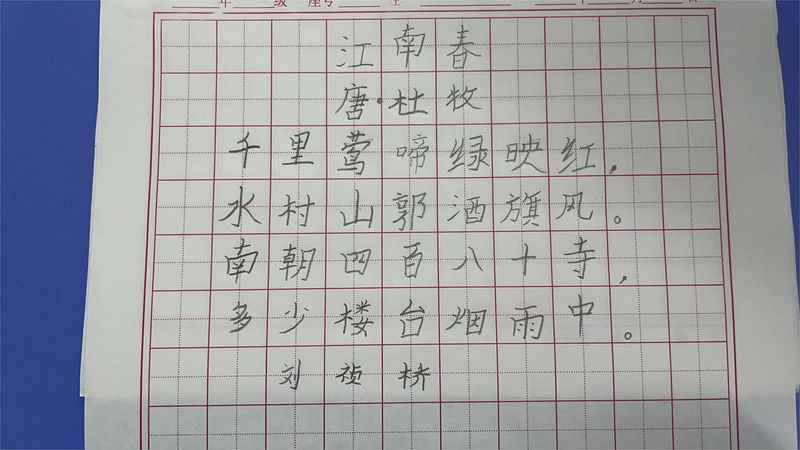 年 级 座号
江南春
唐·杜牧
千里莺啼绿映红,
水村山郭酒旗风。
南朝四百八十寺,
多少楼台烟雨中。
刘祯桥